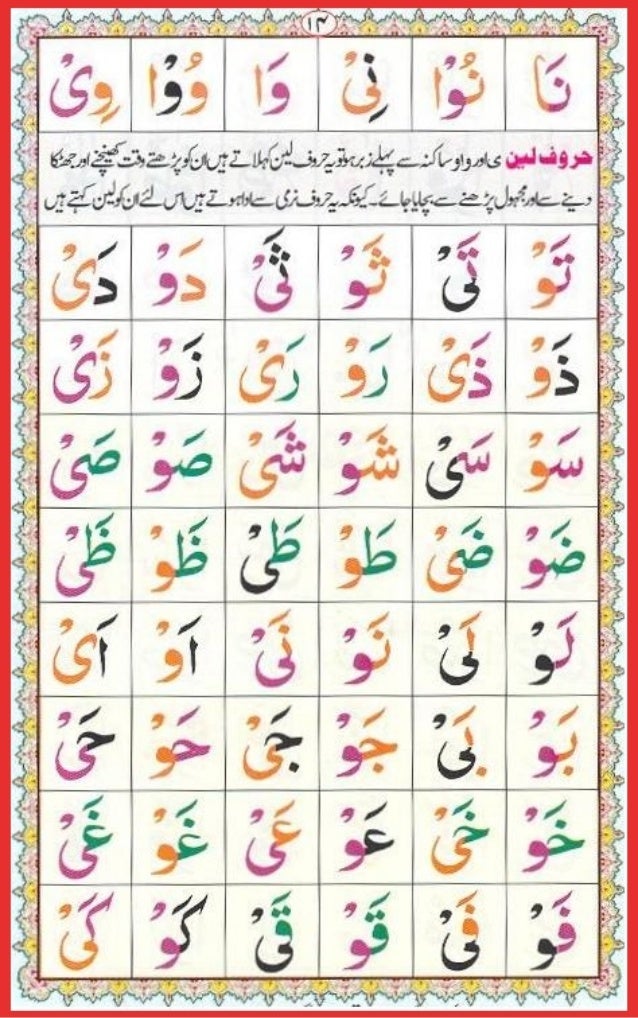 ۱۴
نَا نُوْا نِیْ وَا وُوْا وِیْ
حروف لین ی اور واو ساکنہ سے پہلے زبر ہو تو یہ حروف لین کہلاتے ہیں ان کو پڑھتے وقت کھینچنے اور جھٹکا
دینے سے اور مجہول پڑھنے سے بچایا جائے۔ کیونکہ یہ حروف نرمی سے ادا ہوتے ہیں اس لئے ان کو لین کہتے ہیں
تَوْ تَیْ ثَوْ ثَیْ دَوْ دَیْ
ذَوْ ذَیْ رَوْ رَیْ زَوْ زَیْ
سَوْ سَیْ شَوْ شَیْ صَوْ صَیْ
ضَوْ ضَیْ طَوْ طَیْ ظَوْ ظَیْ
لَوْ لَیْ نَوْ نَیْ اَوْ اَیْ
بَوْ بَیْ جَوْ جَیْ حَوْ حَیْ
خَوْ خَیْ عَوْ عَیْ غَوْ غَیْ
فَوْ فَیْ قَوْ قَیْ کَوْ کَیْ